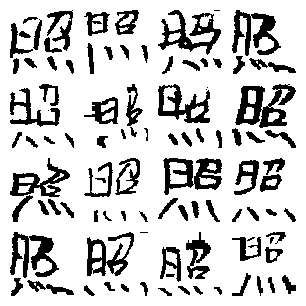 照照照照
照照照照
照照照照
照照照照